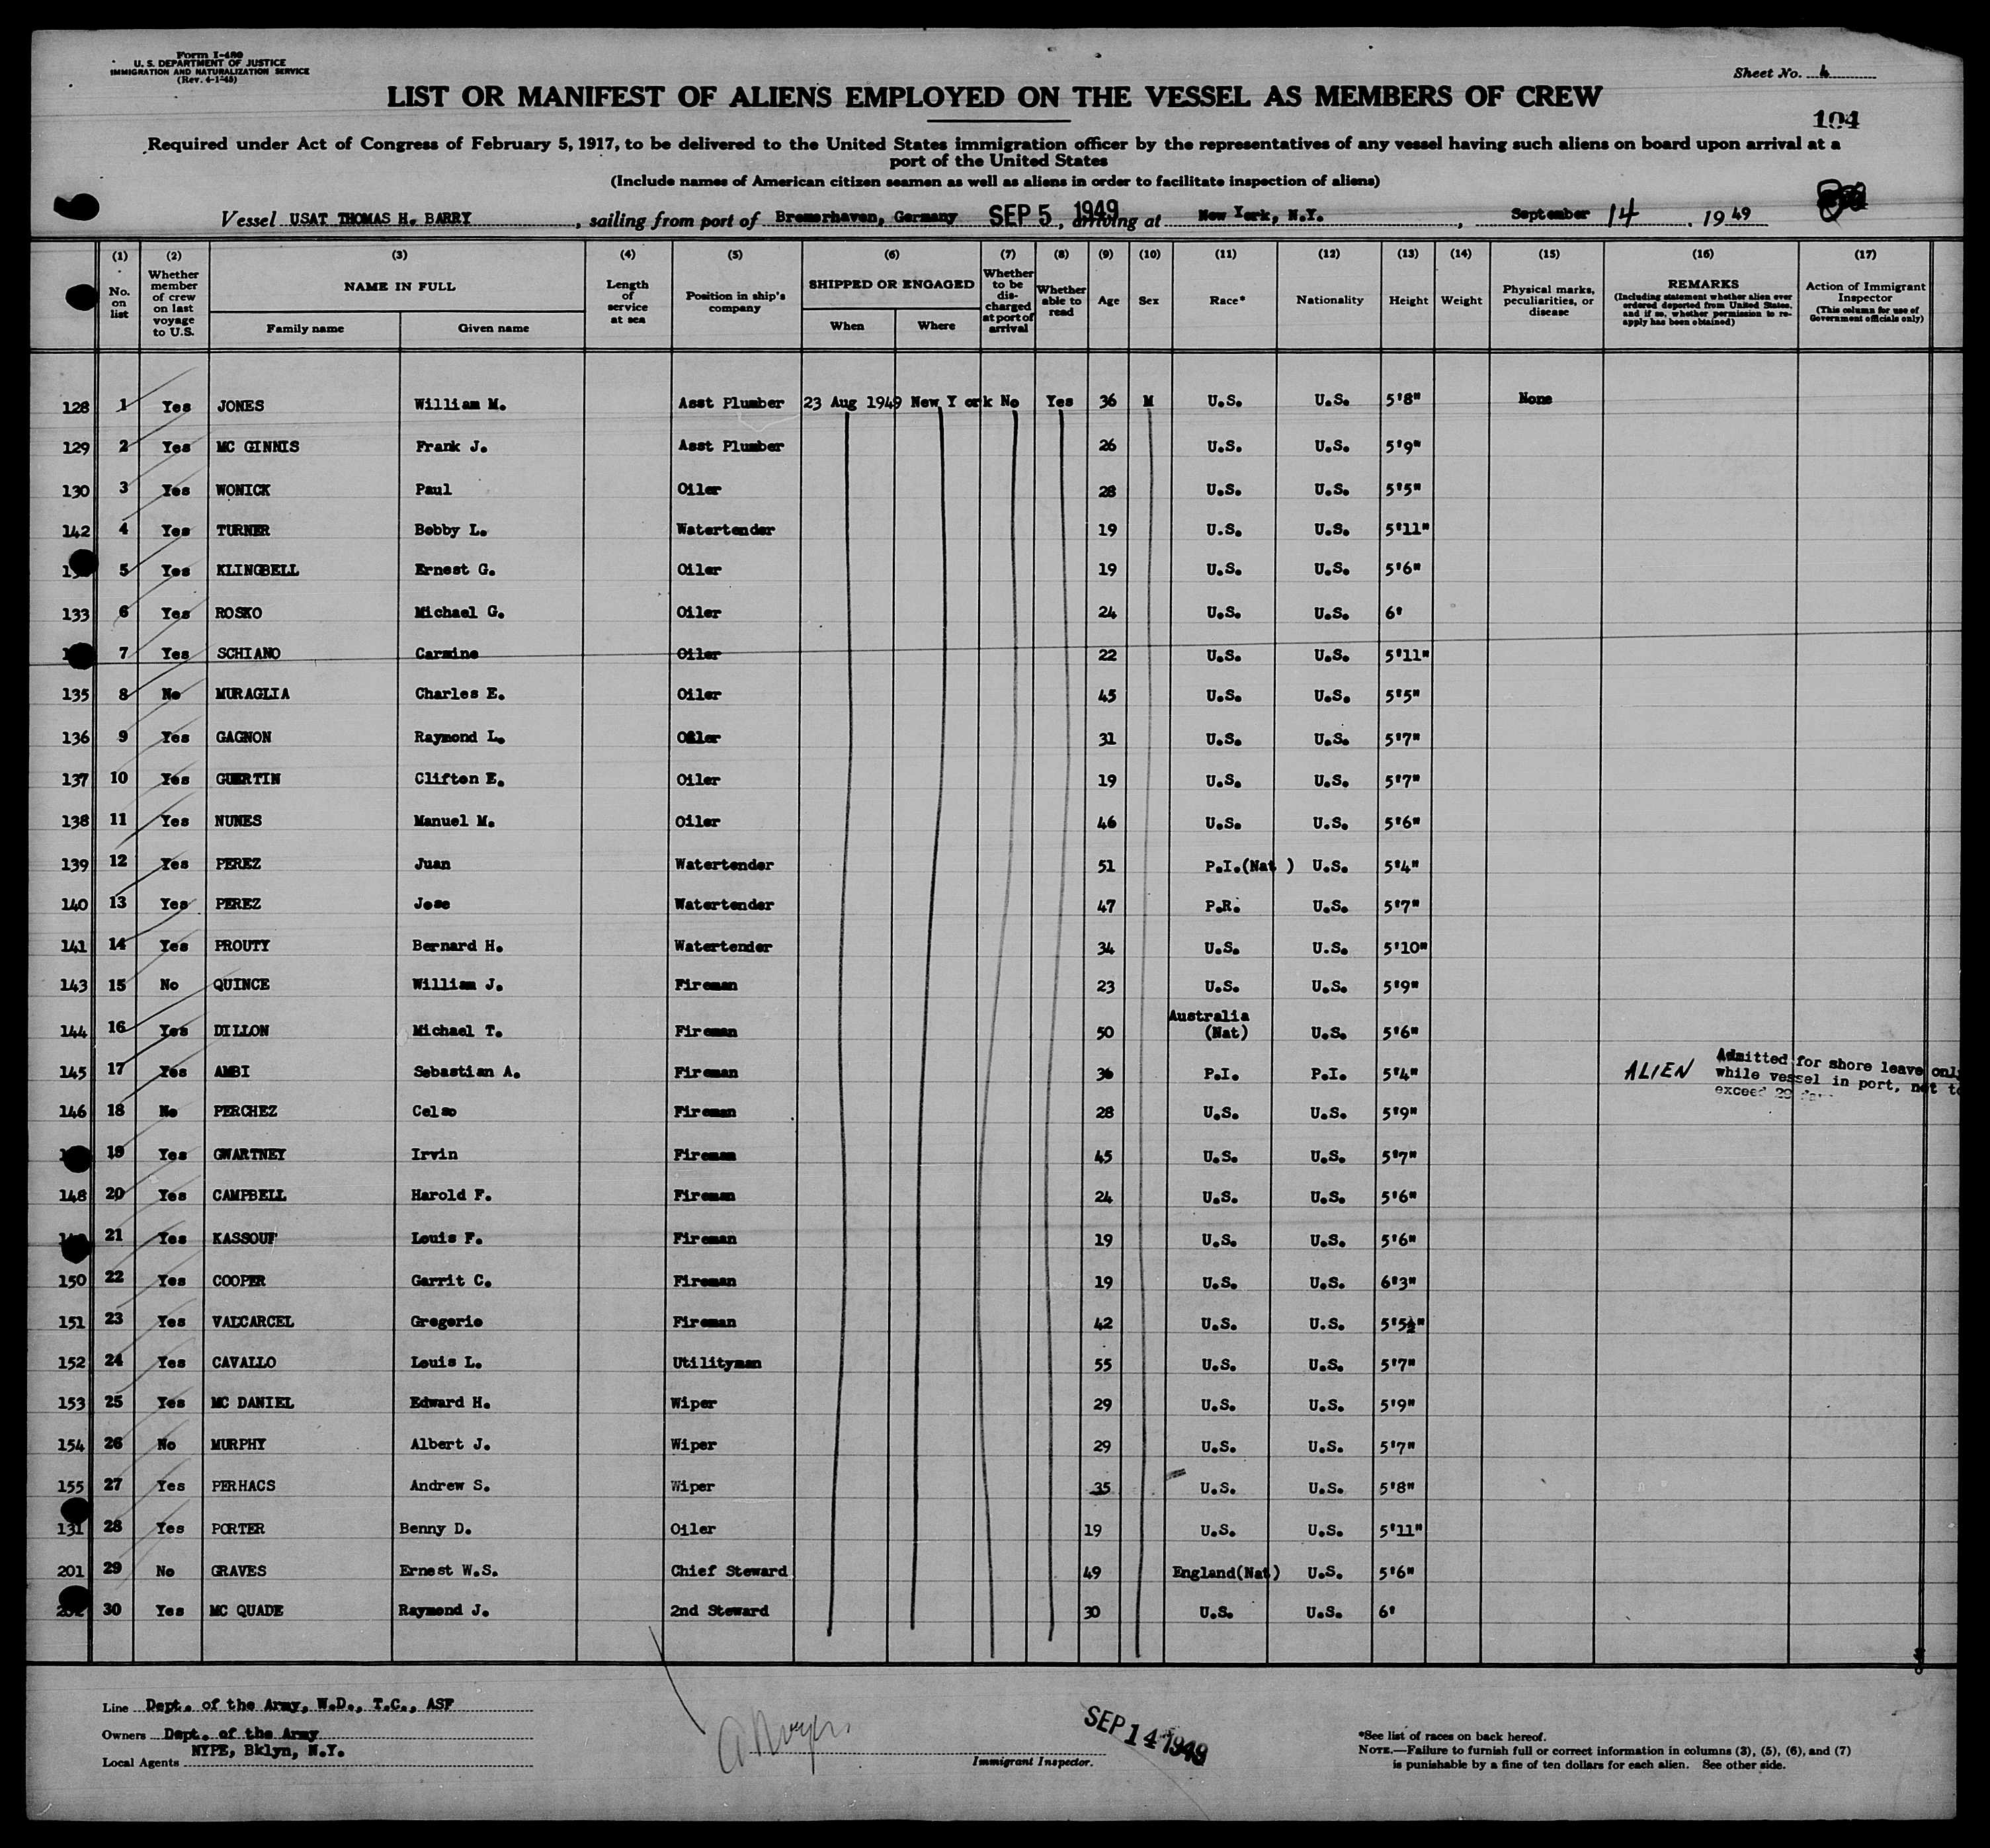 Form I-480
U. S. DEPARTMENT OF JUSTICE
IMMIGRATION AND NATURALIZATION SERVICE
(Rev. 4-1-45)
Sheet No. 4
LIST OR MANIFEST OF ALIENS EMPLOYED ON THE VESSEL AS MEMBERS OF CREW
104
Required under Act of Congress of February 5, 1917, to be delivered to the United States immigration officer by the representatives of any vessel having such aliens on board upon arrival at a
port of the United States
(Include names of American citizen seamen as well as aliens in order to facilitate inspection of aliens)
Vessel USAT THOMAS H. BARRY, sailing from port of Bremerhaven, Germany SEP 5 1949, arriving at New York, N.Y., September 14, 1949
(1) (2) (3) (4) (5) (6) (7) (8) (9) (10) (11) (12) (13) (14) (15) (16) (17)
No. on list
Whether member of crew on last voyage to U.S.
NAME IN FULL
Family name
Given name
Length of service at sea
Position in ship's company
SHIPPED OR ENGAGED
When
Where
Whether to be discharged at port of arrival
Whether able to read
Age
Sex
Race*
Nationality
Height
Weight
Physical marks, peculiarities, or disease
REMARKS
(Including statement whether alien ever ordered deported from United States, and if so, whether permission to reapply has been obtained)
Action of Immigrant Inspector
(This column for use of Government officials only)
128 1 Yes JONES William M. Asst Plumber 23 Aug 1949 New York No Yes 36 M U.S. U.S. 5'8" None
129 2 Yes MC GINNIS Frank J. Asst Plumber 26 U.S. U.S. 5'9"
130 3 Yes WONICK Paul Oiler 28 U.S. U.S. 5'5"
142 4 Yes TURNER Bobby L. Watertender 19 U.S. U.S. 5'11"
5 Yes KLINGBELL Ernest G. Oiler 19 U.S. U.S. 5'6"
133 6 Yes ROSKO Michael G. Oiler 24 U.S. U.S. 6'
7 Yes SCHIANO Carmine Oiler 22 U.S. U.S. 5'11"
135 8 No MURAGLIA Charles E. Oiler 45 U.S. U.S. 5'5"
136 9 Yes GAGNON Raymond L. Oiler 31 U.S. U.S. 5'7"
137 10 Yes GUERTIN Clifton E. Oiler 19 U.S. U.S. 5'7"
138 11 Yes NUNES Manuel M. Oiler 46 U.S. U.S. 5'6"
139 12 Yes PEREZ Juan Watertender 51 P.I.(Nat ) U.S. 5'4"
140 13 Yes PEREZ Jose Watertender 47 P.R. U.S. 5'7"
141 14 Yes PROUTY Bernard H. Watertender 34 U.S. U.S. 5'10"
143 15 No QUINCE William J. Fireman 23 U.S. U.S. 5'9"
144 16 Yes DILLON Michael T. Fireman 50 Australia (Nat) U.S. 5'6"
145 17 Yes AMBI Sebastian A. Fireman 36 P.I. P.I. 5'4" ALIEN Admitted for shore leave only
while vessel in port, not to
exceed 29
146 18 No PERCHEZ Celso Fireman 28 U.S. U.S. 5'9"
19 Yes GWARTNEY Irvin Fireman 45 U.S. U.S. 5'7"
148 20 Yes CAMPBELL Harold F. Fireman 24 U.S. U.S. 5'6"
21 Yes KASSOUF Louis F. Fireman 19 U.S. U.S. 5'6"
150 22 Yes COOPER Garrit C. Fireman 19 U.S. U.S. 6'3"
151 23 Yes VALCARCEL Gregorio Fireman 42 U.S. U.S. 5'5½"
152 24 Yes CAVALLO Louis L. Utilityman 55 U.S. U.S. 5'7"
153 25 Yes MC DANIEL Edward H. Wiper 29 U.S. U.S. 5'9"
154 26 No MURPHY Albert J. Wiper 29 U.S. U.S. 5'7"
155 27 Yes PERHACS Andrew S. Wiper 35 U.S. U.S. 5'8"
131 28 Yes PORTER Benny D. Oiler 19 U.S. U.S. 5'11"
201 29 No GRAVES Ernest W.S. Chief Steward 49 England(Nat) U.S. 5'6"
30 Yes MC QUADE Raymond J. 2nd Steward 30 U.S. U.S. 6'
Line Dept. of the Army, W.D., T.C., ASF
Owners Dept. of the Army
NYPE, Bklyn, N.Y.
Local Agents
Immigrant Inspector.
SEP 14 1949
*See list of races on back hereof.
NOTE.—Failure to furnish full or correct information in columns (3), (5), (6), and (7)
is punishable by a fine of ten dollars for each alien. See other side.